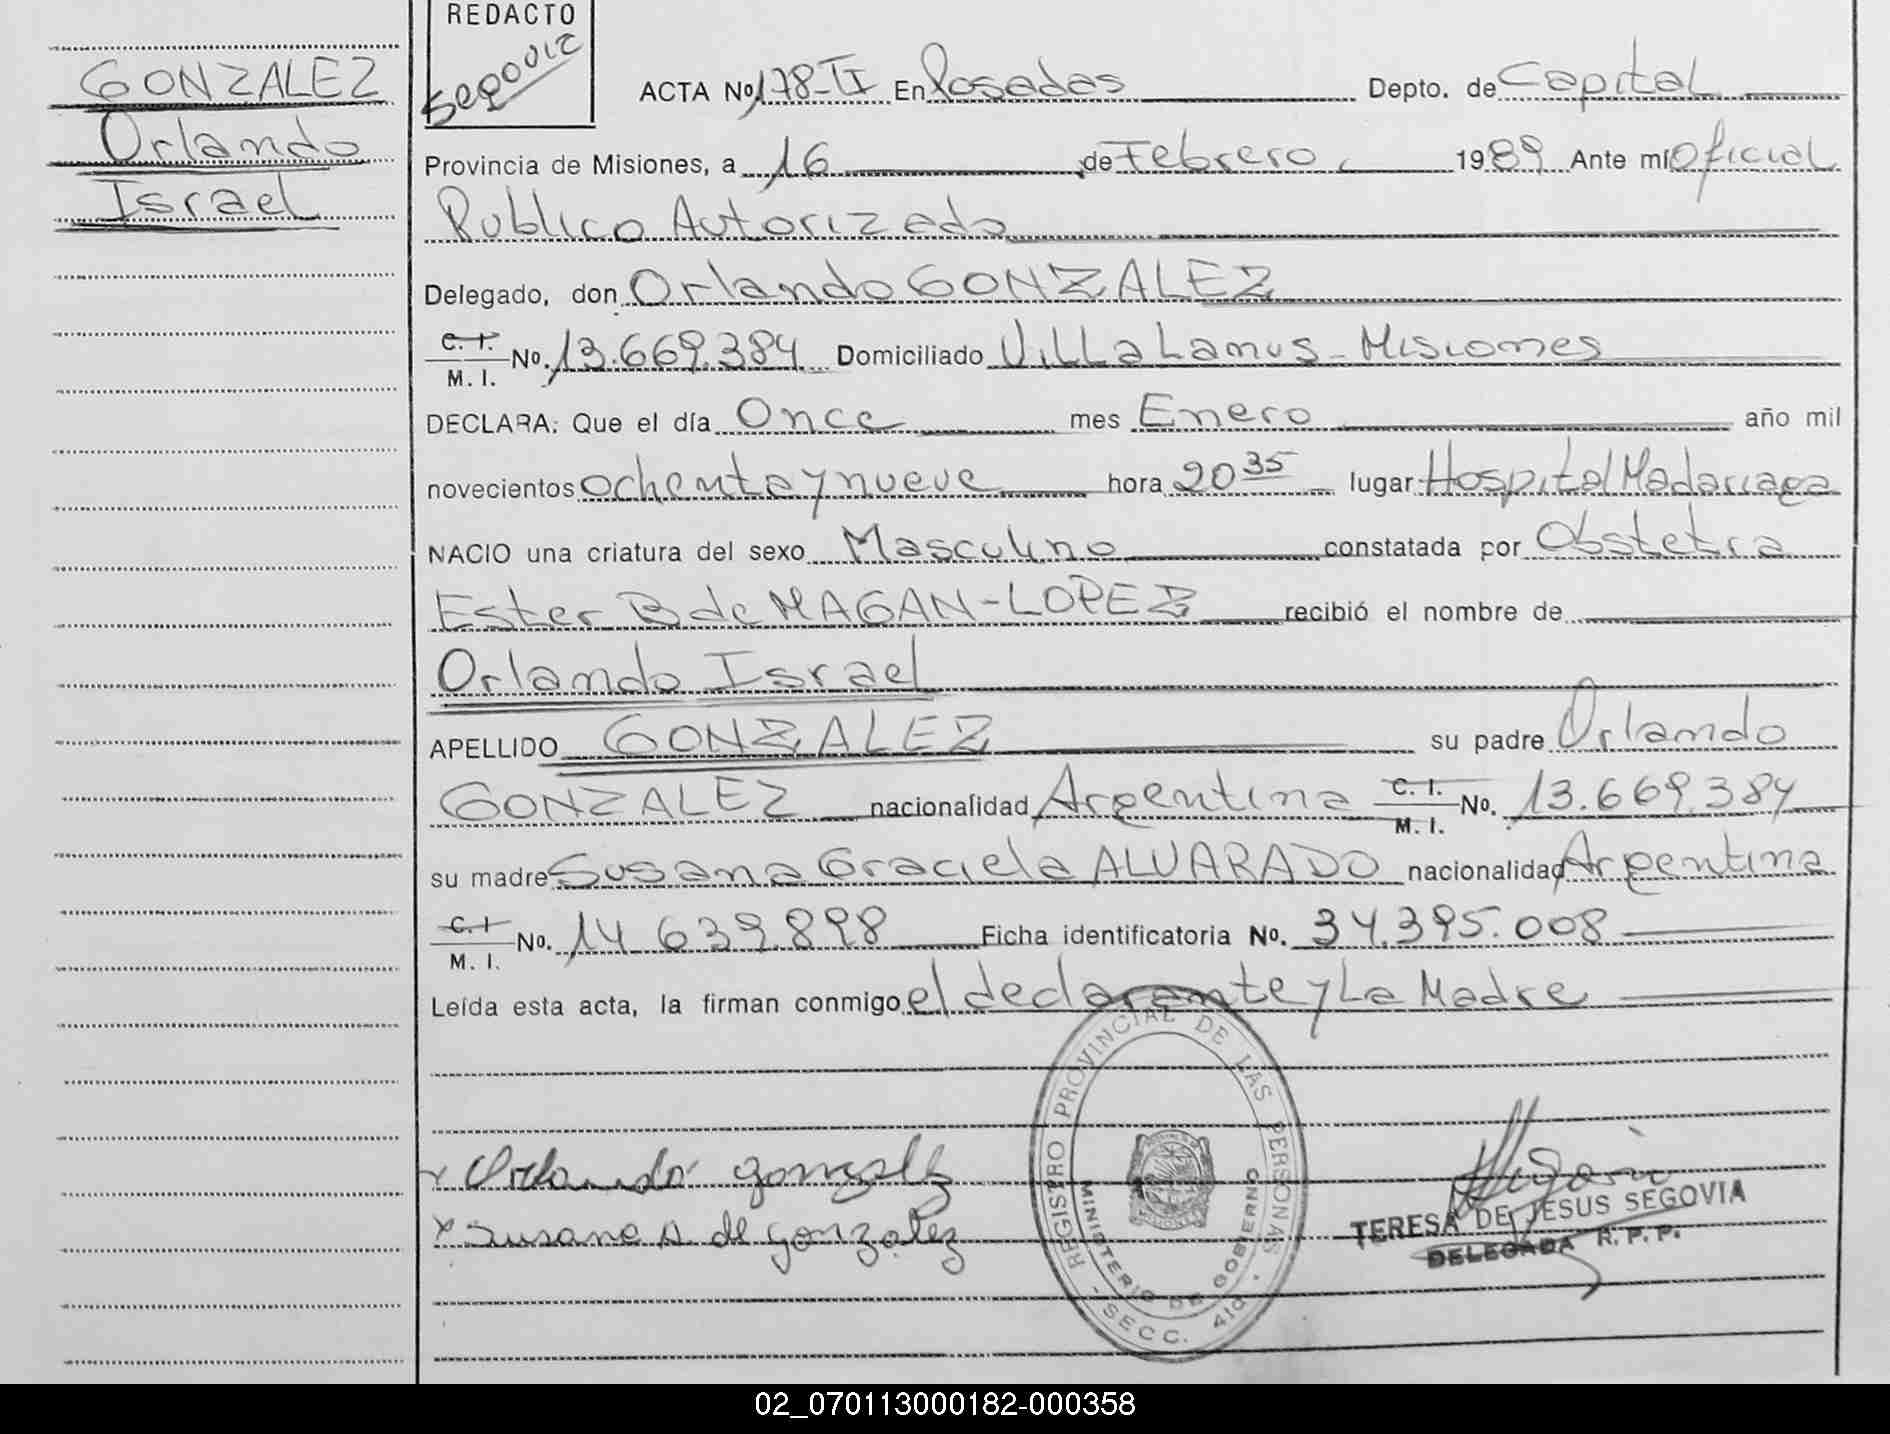 GONZALEZ
Orlando
Israel
REDACTO
ACTA No. 178-II En Posadas Depto. de Capital
Provincia de Misiones, a 16 de Febrero 1989 Ante mí Oficial
Publico Autorizado
Delegado, don Orlando GONZALEZ
C. I. M. I. No. 13.669.384 Domiciliado Villa Lanus - Misiones
DECLARA: Que el día Once mes Enero año mil
novecientos ochenta y nueve hora 20 35 lugar Hospital Madariaga
NACIO una criatura del sexo Masculino constatada por Obstetra
Ester B de MAGAN-LOPEZ recibió el nombre de
Orlando Israel
APELLIDO GONZALEZ su padre Orlando
GONZALEZ nacionalidad Argentina C. I. M. I. No. 13.669.384
su madre Susana Graciela ALVARADO nacionalidad Argentina
C. I M. I. No. 14 639.898 Ficha identificatoria No. 34.395.008
Leída esta acta, la firman conmigo el declarante y La Madre
x Orlando gonzalez
x Susana A de gonzalez
REGISTRO PROVINCIAL DE LAS PERSONAS
MINISTERIO DE GOBIERNO
- SECC. 41a. -
TERESA DE JESUS SEGOVIA
DELEGADA R. P. P.
02_070113000182-000358